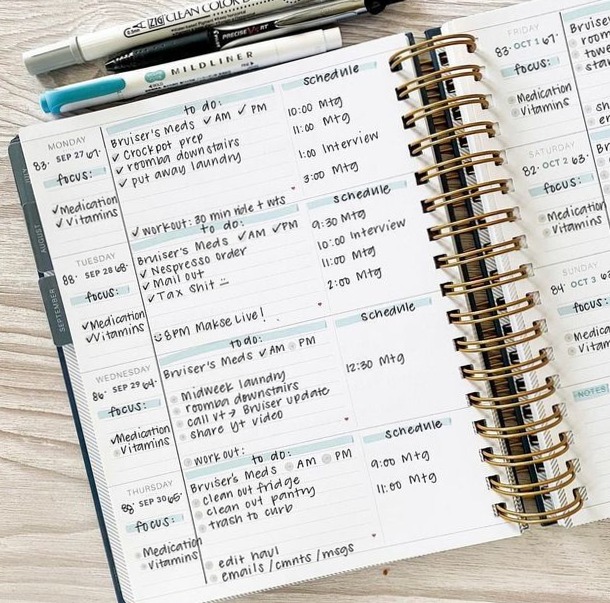 ZIG CLEAN COLOR
PRECISE V5 RT
MILDLINER
AUGUST
SEPTEMBER
MONDAY
83° SEP 27 67°
focus:
✓Medication
✓Vitamins
to do:
Bruiser's Meds ✓AM ✓PM
✓ Crockpot prep
✓ roomba downstairs
✓ put away laundry
✓ workout: 30 min ride + wts
schedule
10:00 Mtg
11:00 Mtg
1:00 Interview
3:00 Mtg
TUESDAY
88° SEP 28 68°
focus:
✓Medication
✓Vitamins
to do:
Bruiser's Meds ✓AM ✓PM
✓ Nespresso order
✓ Mail out
✓ Tax Shit
8PM Makse Live!
schedule
9:30 Mtg
10:00 Interview
11:00 Mtg
2:00 Mtg
WEDNESDAY
86° SEP 29 64°
focus:
✓Medication
Vitamins
to do:
Bruiser's Meds ✓AM PM
Midweek laundry
roomba downstairs
call vt → Bruiser update
share yt video
workout:
schedule
12:30 Mtg
THURSDAY
88° SEP 30 65°
focus:
Medication
Vitamins
to do:
Bruiser's Meds AM PM
clean out fridge
clean out pantry
trash to curb
edit haul
emails/cmnts/msgs
schedule
9:00 Mtg
11:00 Mtg
FRIDAY
83° OCT 1 67°
focus:
Medication
Vitamins
SATURDAY
82° OCT 2 63°
focus:
Medication
Vitamins
SUNDAY
84° OCT 3
focus:
NOTES